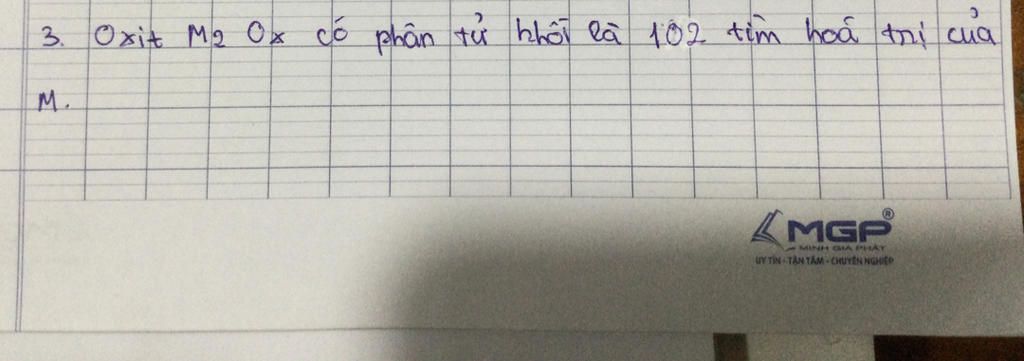 3. Oxit M2 Ox có phân tử khối là 102 tìm hoá trị của
M.
MGP®
MINH GIA PHÁT
UY TÍN - TẬN TÂM - CHUYÊN NGHIỆP